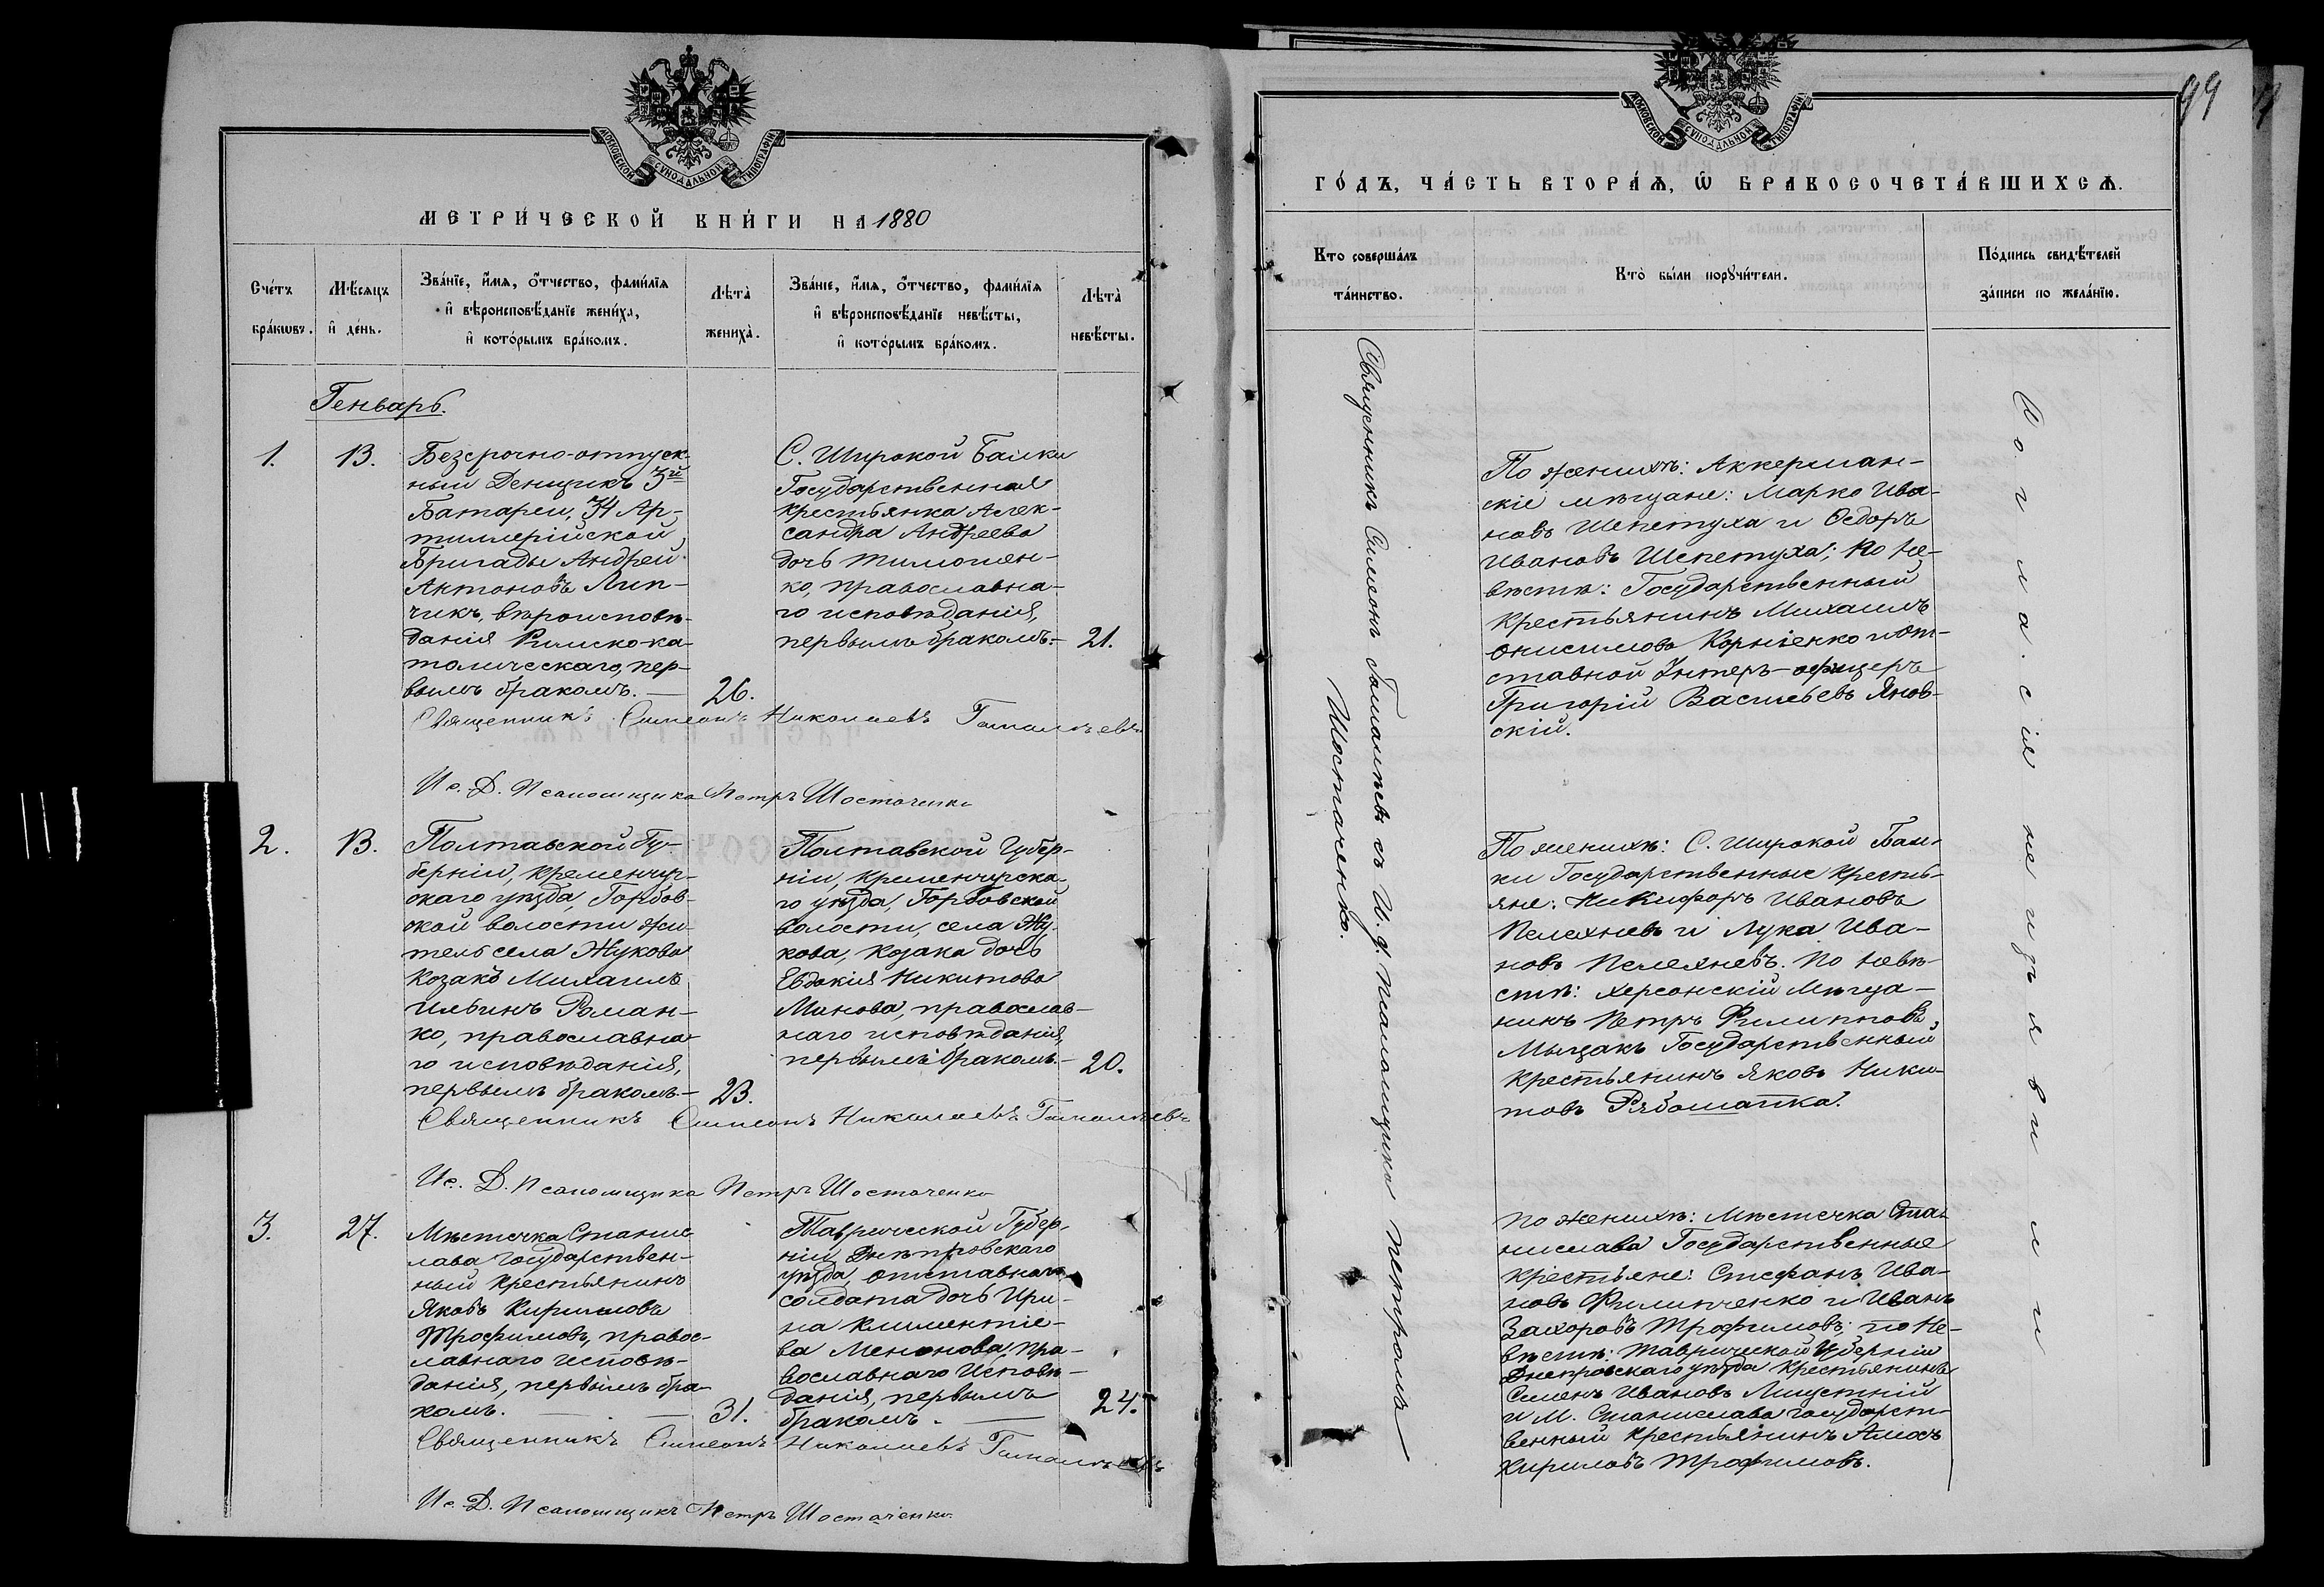 МОСКОВСКОЙ СѴНОДАЛЬНОЙ ТИПОГРАФІИ
МЕТРИ́ЧЕСКОЙ КНИ́ГИ НА 1880
Сче́тъ бра́кωвъ.
Мѣ́сяцъ и҆ де́нь.
Зва́нїе, и҆́мѧ, ѻ҆́тчество, фами́лїѧ
и҆ вѣроисповѣ́данїе жениха̀,
и҆ кото́рымъ бра́комъ.
Лѣта̀ жениха̀.
Зва́нїе, и҆́мѧ, ѻ҆́тчество, фами́лїѧ
и҆ вѣроисповѣ́данїе невѣ́сты,
и҆ кото́рымъ бра́комъ.
Лѣта̀ невѣ́сты.
Генварь.
1.
13.
Безсрочно-отпуск-
ный Денщикъ 3й
Батареи, 34 Ар-
тиллерійской
Бригады Андрей
Антоновъ Лип-
чикъ, вѣроисповѣ-
данія Римско-ка-
толическаго, пер-
вымъ бракомъ. —
26.
С. Широкой Балки
Государственная
крестьянка Алек-
сандра Андреева
дочь Тимошен-
ко, православна-
го исповѣданія,
первымъ бракомъ. —
21.
Священникъ Симеонъ Николаевъ Гамалѣевъ
Ис. Д. Псаломщика Петръ Шостаченко
2.
13.
Полтавской Гу-
берніи, Кременчуг-
скаго уѣзда, Горбов-
ской волости жи-
тель села Жукова
Козакъ Михаилъ
Ильинъ Роман-
ко, православна-
го исповѣданія,
первымъ бракомъ. —
23.
Полтавской Губер-
ніи, Кременчугска-
го уѣзда, Горбовской
волости, села Жу-
кова, Козака дочь
Евдокія Никитова
Минова, православ-
наго исповѣданія,
первымъ бракомъ. —
20.
Священникъ Симеонъ Николаевъ Гамалѣевъ
Ис. Д. Псаломщика Петръ Шостаченко
3.
27.
Мѣстечка Станис-
лава Государствен-
ный крестьянинъ
Яковъ Кириловъ
Трофимовъ, правос-
лавнаго исповѣ-
данія, первымъ бра-
комъ. —
31.
Таврической Губер-
ніи Днѣпровскаго
уѣзда, отставнаго
солдата дочь Ири-
на Климентіе-
ва Менонова, пра-
вославнаго исповѣ-
данія, первымъ
бракомъ. —
24.
Священникъ Симеонъ Николаевъ Гамалѣевъ
Ис. Д. Псаломщикъ Петръ Шостаченко
99
МОСКОВСКОЙ СѴНОДАЛЬНОЙ ТИПОГРАФІИ
ГО́ДЪ, ЧА́СТЬ ВТОРА́Ѧ, Ѽ БРАКОСОЧЕТА́ВШИХСѦ.
Кто̀ соверша́лъ
та́инство.
Кто̀ бы́ли порꙋчи́тели.
По́дпись свидѣ́телей
за́писи по жела́нїю.
Священникъ Симеонъ Гамалѣевъ съ И. д. Псаломщика Петромъ
Шостаченко.
По женихѣ: Аккерман-
скіе мѣщане: Марко Ива-
новъ Шепетуха и Ѳедоръ
Ивановъ Шепетуха; по не-
вѣстѣ: Государственный
крестьянинъ Михаилъ
Онисимовъ Корніенко и от-
ставной Унтеръ-офицеръ
Григорій Васильевъ Янов-
скій.
По женихѣ: С. Широкой Бал-
ки Государственные кресть-
яне: Никифоръ Ивановъ
Пелехневъ и Лука Ива-
новъ Пелехневъ. По невѣ-
стѣ: Херсонскій Мѣща-
нинъ Петръ Филипповъ
Мыцакъ Государственный
крестьянинъ Яковъ Ники-
товъ Рябошапка.
По женихѣ: Мѣстечка Ста-
нислава Государственные
крестьяне: Стефанъ Ива-
новъ Филипченко и Иванъ
Захаровъ Трофимовъ; по не-
вѣстѣ: Таврической Губерніи
Днепровскаго уѣзда крестьянинъ
Семенъ Ивановъ
и М. Станислава государст-
венный крестьянинъ
Кириловъ Трофимовъ.
Согласія не изъявили